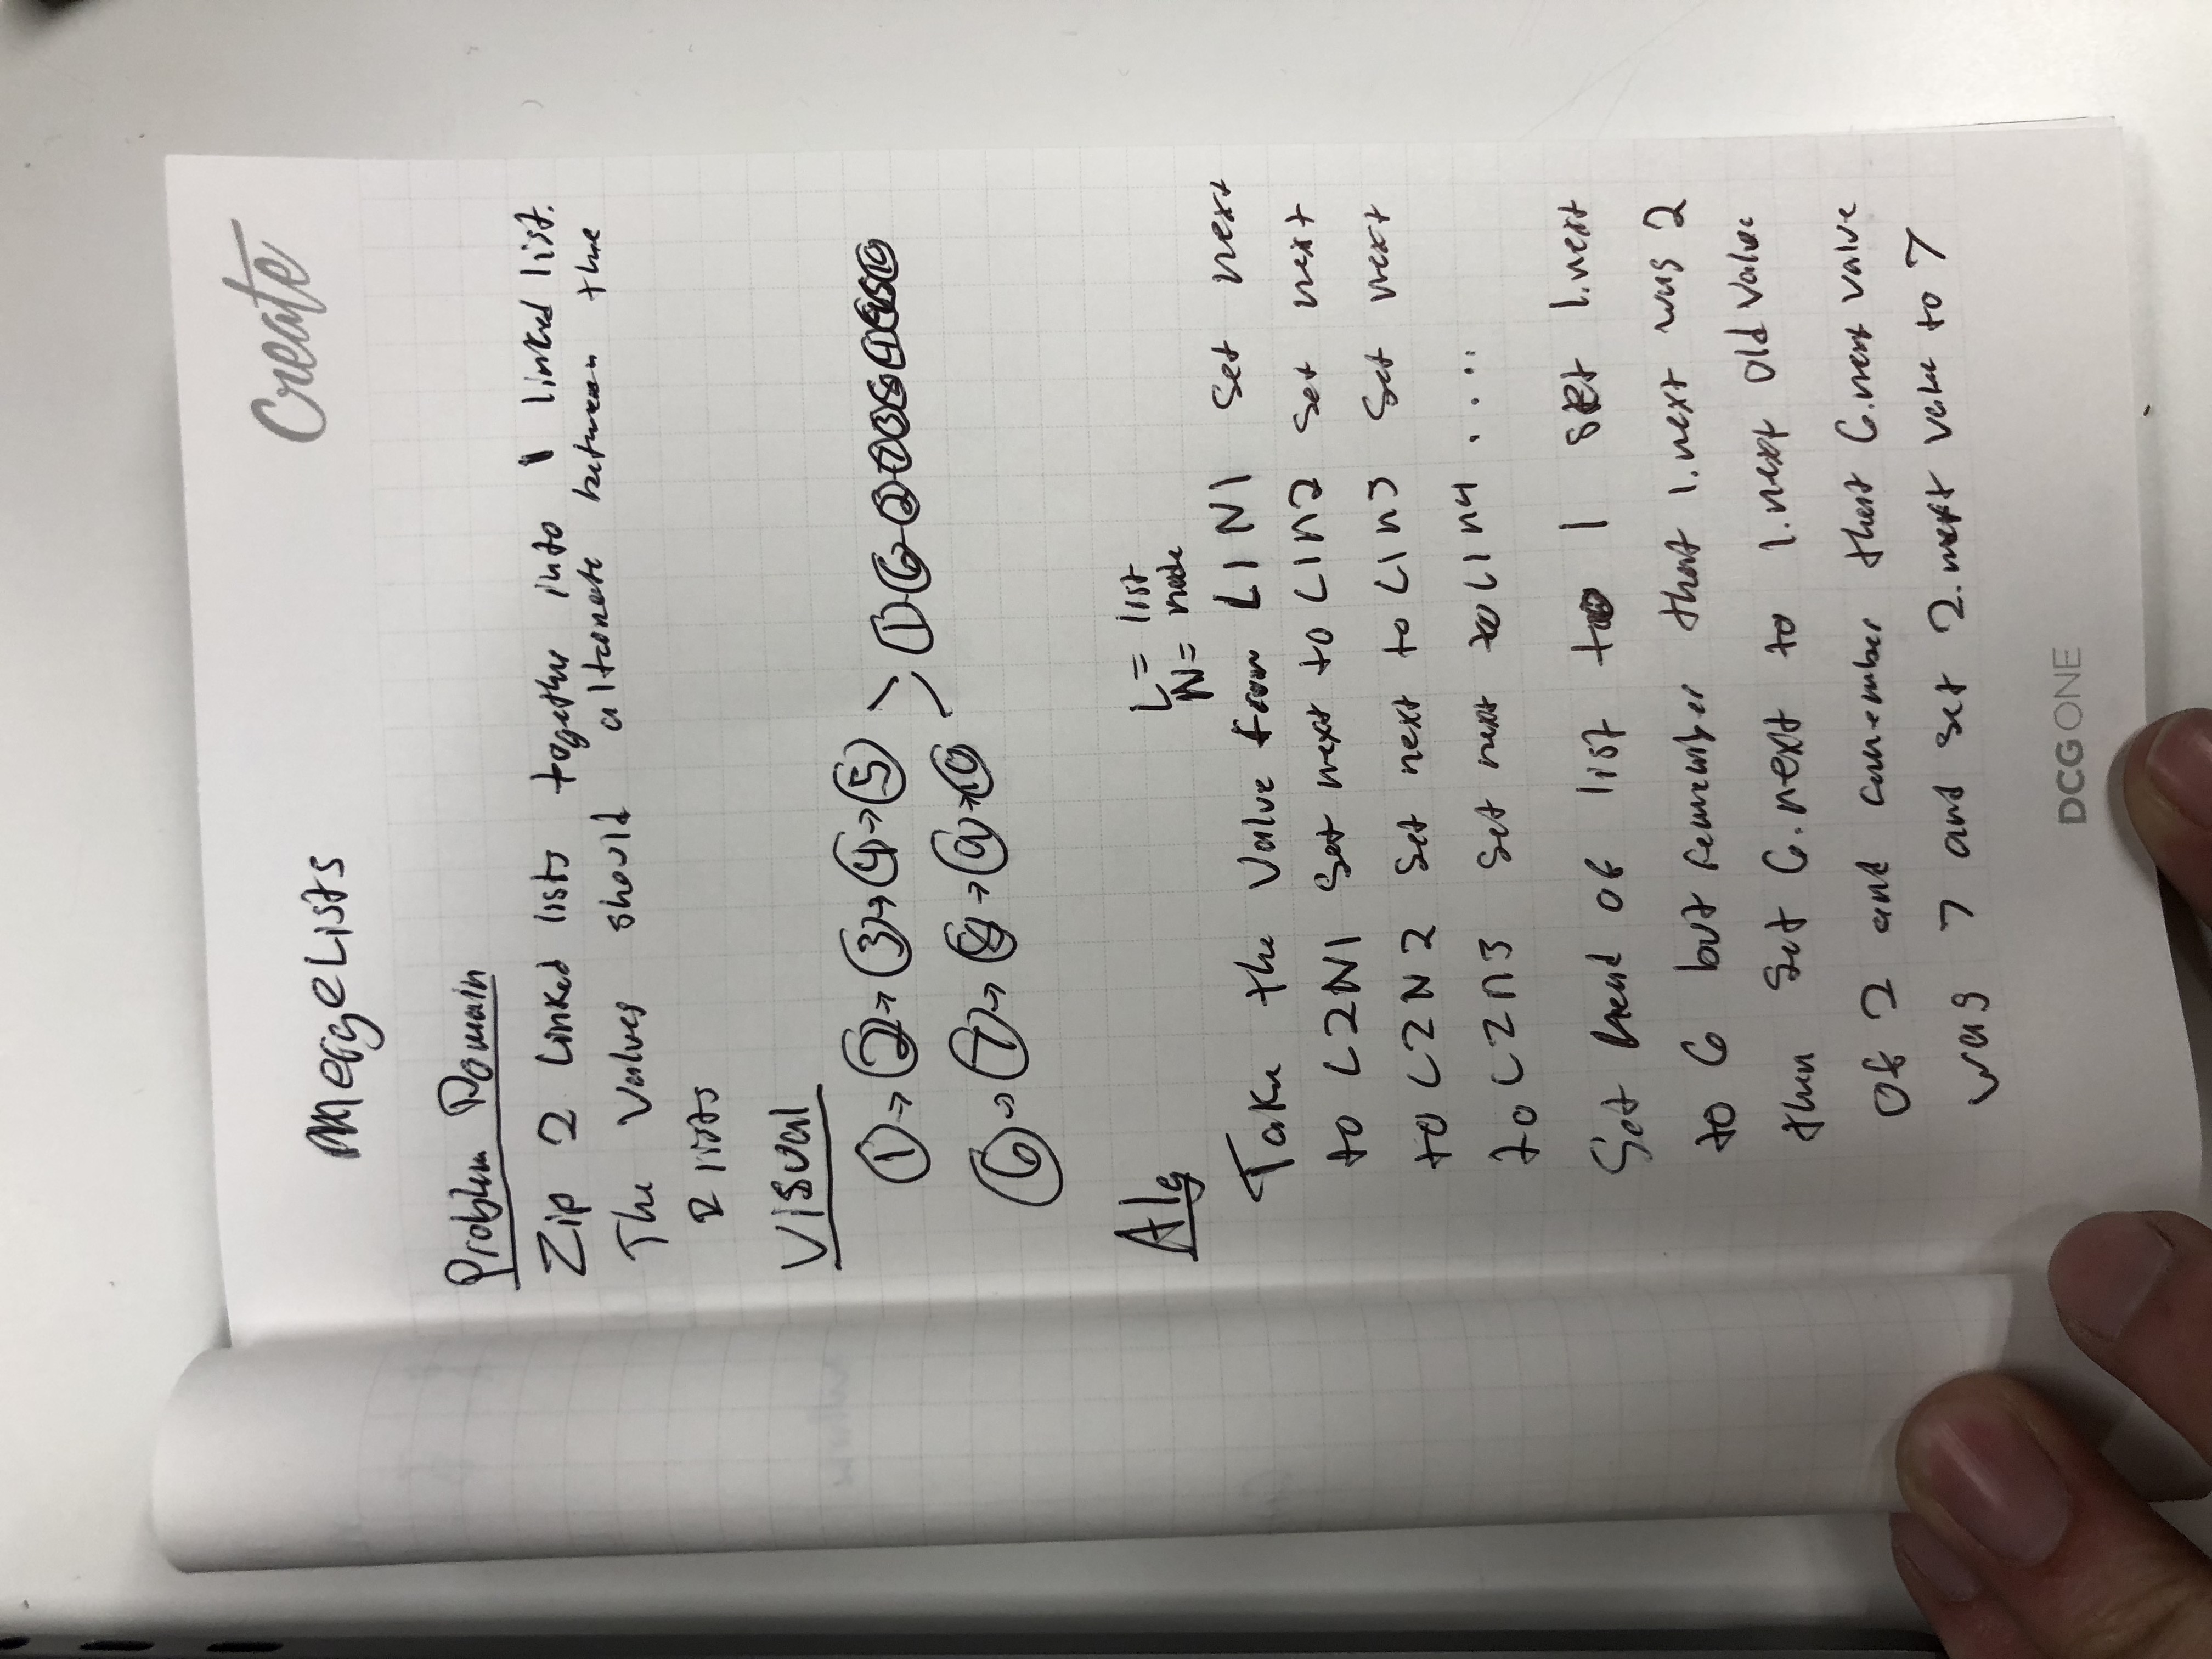 Create
MergeLists
Problem Domain
Zip 2 Linked lists together into 1 linked list.
The Values should alternate between the
2 lists
Visual
1 → 2 → 3 → 4 → 5
1 6 2 7 3 8 4 9 5 10
6 → 7 → 8 → 9 → 10
Alg
L = list
N = node
Take the Value from L1N1 Set next
to L2N1 Set next to L1n2 Set next
to L2N2 Set next to L1n3 Set next
to L2n3 Set next to L1n4 ....
Set head of list to 1 set 1.next
to 6 but remember that 1.next was 2
then Set 6.next to 1.next old value
of 2 and remember that 6.next value
was 7 and set 2.next value to 7
DCG ONE